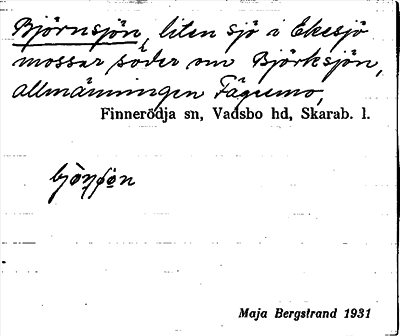 Björnsjön, liten sjö i Ekesjö
mossar söder om Björksjön,
allmänningen Fägumo,
Finnerödja sn, Vadsbo hd, Skarab. l.
Maja Bergstrand 1931